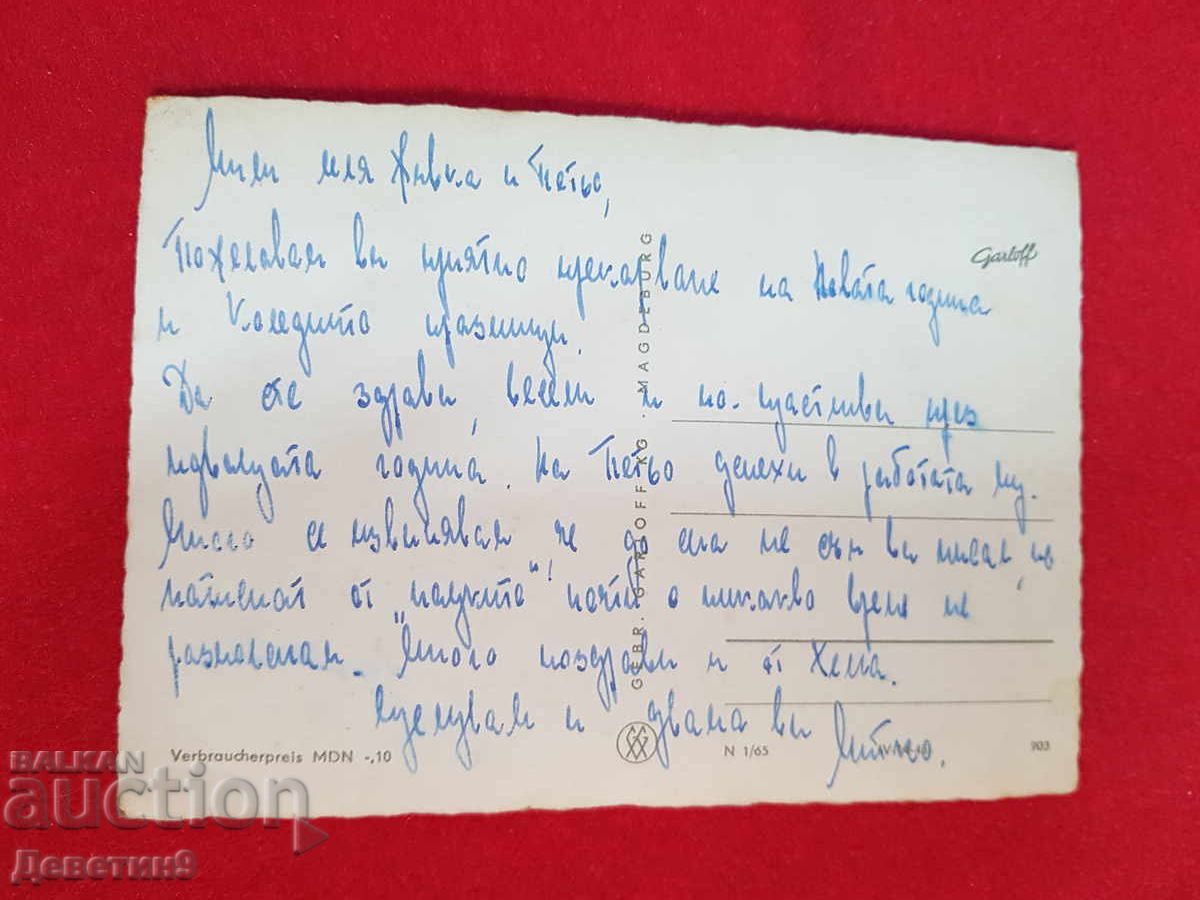 Мили леля Живка и Петьо,
Пожелавам ви приятно прекарване на Новата година
и Коледните празници.
Да сте здрави, весели и по-щастливи през
идващата година. На Петьо успехи в работата му.
Много се извинявам че до сега не съм ви писал, но
от "науките" почти никакво време не
разполагам. Много поздрави и от Хена.
Целувам и двама ви
Митко.
Garloff
GEBR. GARLOFF KG. · MAGDEBURG
Verbraucherpreis MDN -,10
N 1/65
903
BALKAN
auction
Деветин9